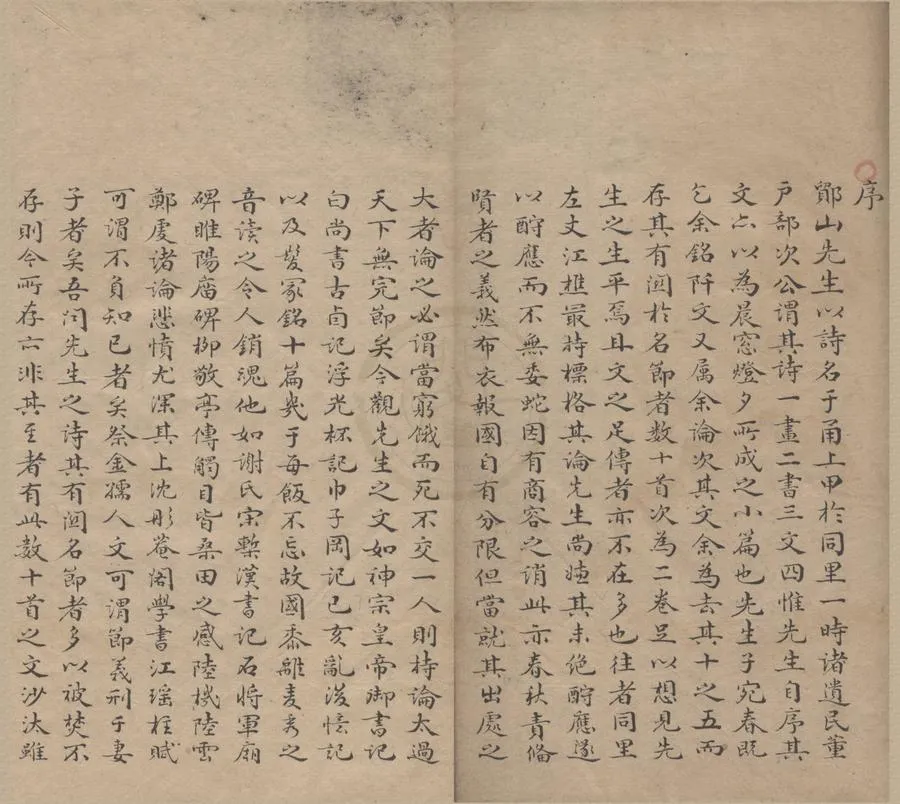 序
鄮山先生以詩名于甬上甲於同里一時諸遺民董
戶部次公謂其詩一畫二書三文四惟先生自序其
文亦以為晨窓燈夕所成之小篇也先生子宛春既
乞余銘阡文又属余論次其文余為去其十之五而
存其有関於名節者數十首次為二卷足以想見先
生之生平焉且文之足傳者亦不在多也往者同里
左丈江樵最持標格其論先生尚嫌其未絶酧應遂
以酧應而不無委蛇因有商容之誚此亦春秋責備
賢者之義然布衣報國自有分限但當就其出處之
大者論之必謂當窮餓而死不交一人則持論太過
天下無完節矣今觀先生之文如神宗皇帝御書記
白尚書古卣記浮光杯記巾子岡記己亥亂後憶記
以及髮冢銘十篇幾于每飯不忘故國黍離麦秀之
音讀之令人銷魂他如謝氏宋槧漢書記石將軍廟
碑睢陽庙碑栁敬亭傳觸目皆桑田之感陸機陸雲
鄭虔诸論悲憤尤深其上沈彤菴閣學書江瑶柱賦
可謂不負知已者矣祭金孺人文可謂節義刑于妻
子者矣吾问先生之诗其有関名節者多以被焚不
存則今所存六非其至者有此数十首之文沙汰雖